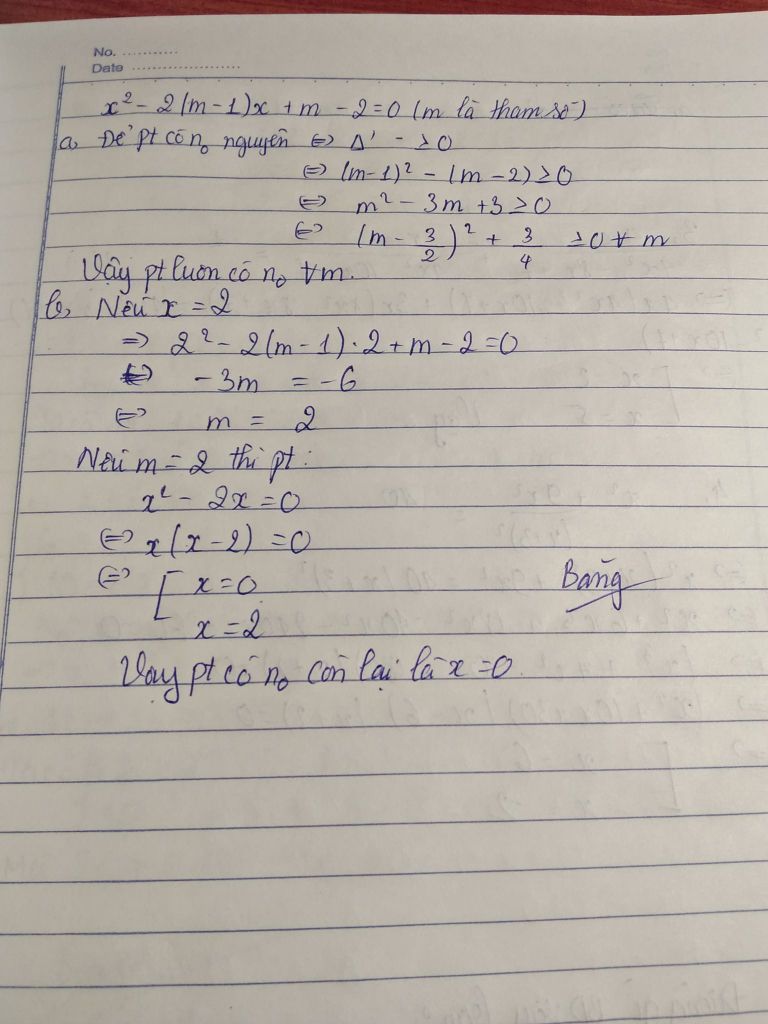 No. ...........
Date .....................
x² - 2(m-1)x + m - 2 = 0 (m là tham số)
a, Để pt có n₀ nguyên ⇔ Δ' - ≥ 0
⇔ (m-1)² - (m-2) ≥ 0
⇔ m² - 3m + 3 ≥ 0
⇔ (m - 3/2)² + 3/4 ≥ 0 ∀ m
Vậy pt luôn có n₀ ∀m.
b, Nếu x = 2
⇒ 2² - 2(m-1)·2 + m - 2 = 0
⇔ -3m = -6
⇔ m = 2
Nếu m = 2 thì pt:
x² - 2x = 0
⇔ x(x-2) = 0
⇔ [ x = 0
x = 2
Bằng
Vậy pt có n₀ còn lại là x = 0.